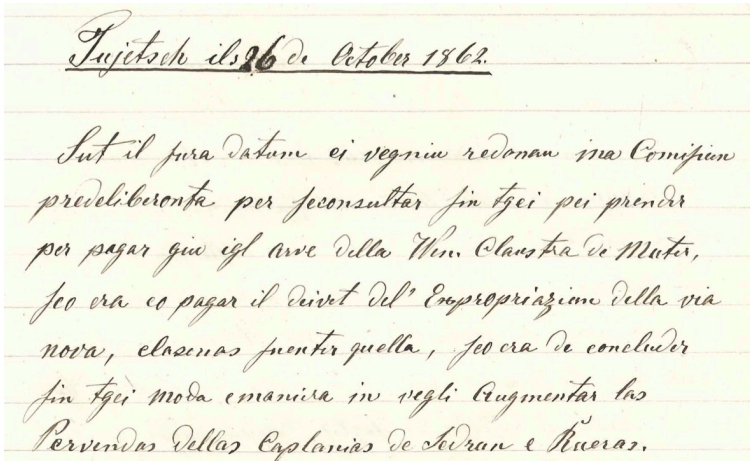 Tujetsch ils 26 de October 1862.
Sut il sura datum ei vegniu redonau ina Comisiun
predeliberonta per seconsultar sin tgei pei prender
per pagar giu igl arve della Wen. Claustra de Muster,
seo era eo pagar il deivet del' Expropriaziun della via
nova, elasenas suenter quella, seo era de concluder
sin tgei moda emaniera in vegli augmentar las
Pervendas dellas Caplanias de Sedrun e Rueras.